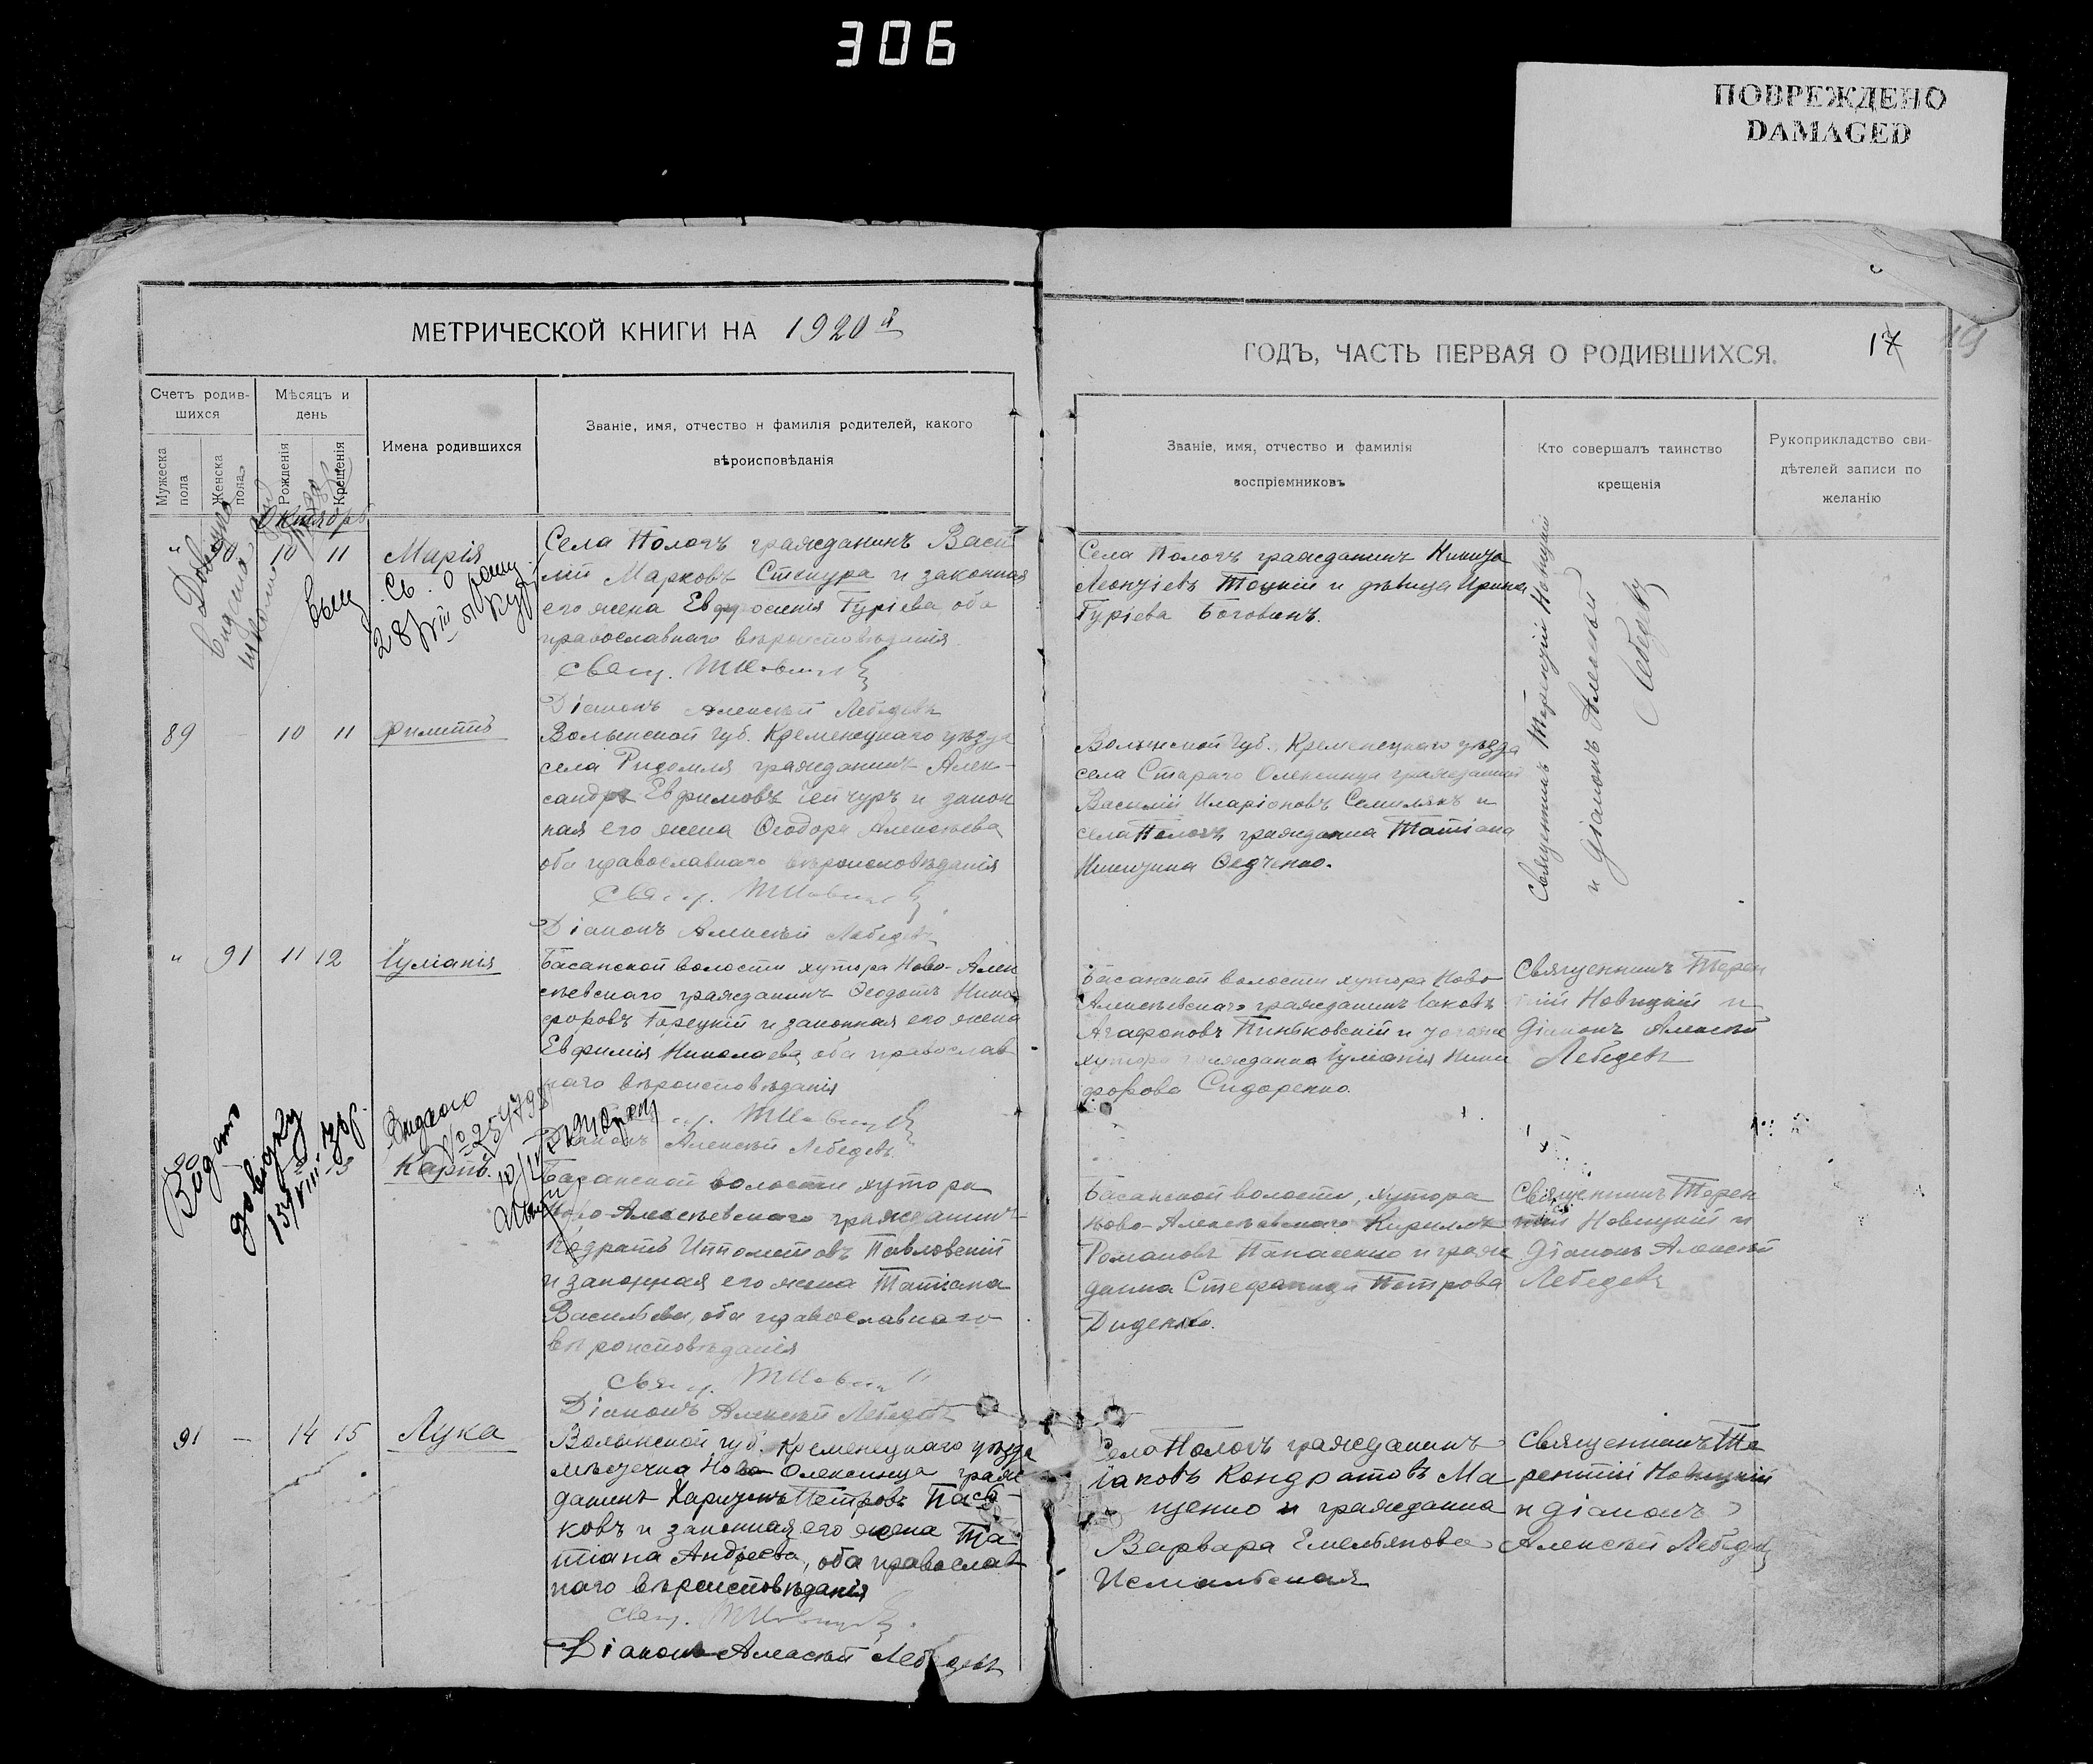 306
ПОВРЕЖДЕНО
DAMAGED
МЕТРИЧЕСКОЙ КНИГИ НА 1920й
ГОДЪ, ЧАСТЬ ПЕРВАЯ О РОДИВШИХСЯ.
17
19
Счетъ родив-
шихся
Мѣсяцъ и
день
Мужеска
пола
Женска
пола
Рожденія
Крещенія
Имена родившихся
Званіе, имя, отчество и фамилія родителей, какого
вѣроисповѣданія
Званіе, имя, отчество и фамилія
воспріемниковъ
Кто совершалъ таинство
крещенія
Рукоприкладство сви-
дѣтелей записи по
желанію
Октябрь
10 11 Марія
Села Пологъ гражданинъ Васи
лій Марковъ Стокура и законная
его жена Евфросинія Гуріева, оба
православнаго вѣроисповѣданія
Свящ. ТНовицкій
Діаконъ Алексѣй Лебедевъ
Села Пологъ гражданинъ Никита
Леонтіевъ Тоцкій и дѣвица Ирина
Гуріева Боговинъ.
Священникъ Терентій Новицкій
и діаконъ Алексѣй
Лебедевъ
89 — 10 11 Филиппъ
Волынской губ. Кременецкаго уѣзда
села Ридомля гражданинъ Алек-
сандръ Евфимовъ Чейчуръ и закон
ная его жена Ѳеодора Алексѣева
оба православнаго вѣроисповѣданія
Свящ. ТНовицкій
Діаконъ Алексѣй Лебедевъ
Волынской губ. Кременецкаго уѣзда
села Стараго Олексинца гражданинъ
Василій Иларіоновъ Семилякъ и
села Пологъ гражданка Татіана
Никитина Ѳедченко.
" 91 11 12 Іуліанія
Басанской волости хутора Ново-Алек
сѣевскаго гражданинъ Ѳеодотъ Ники-
форовъ Горецкій и законная его жена
Евфимія Николаева, оба православ
наго вѣроисповѣданія
ТНовицкій
Діаконъ Алексѣй Лебедевъ.
Басанской волости хутора Ново
Алексѣевскаго гражданинъ Іаковъ
Агафоновъ Пиньковскій и того же
хутора гражданка Іуліанія Ники
форова Сидоренко.
Священникъ Терен
тій Новицкій и
діаконъ Алексѣй
Лебедевъ
90
Видано
довідку
15/VIII 30р.
Видано
Карпъ.
Басанской волости хутора
Ново-Алексѣевскаго гражданинъ
Кодратъ Ипполитовъ Павловскій
и законная его жена Татіана
Васильева, оба православнаго
вѣроисповѣданія
Свящ. ТНовицкій
Діаконъ Алексѣй Лебедевъ
Басанской волости, хутора
Ново-Алексѣевскаго Кириллъ
Романовъ Панасенко и граж
данка Стефанида Петрова
Диденко.
Священникъ Терен
тій Новицкій и
діаконъ Алексѣй
Лебедевъ
91 — 14 15 Лука
Волынской губ. Кременецкаго уѣзда
мѣстечка Ново-Олексинца граж
данинъ Харитонъ Петровъ Пась-
ковъ и законная его жена Та
тіана Андреева, оба православ
наго вѣроисповѣданія
Свящ. ТНовицкій.
Діаконъ Алексѣй Лебедевъ
Села Пологъ гражданинъ
Іаковъ Кондратовъ Ма
щенко и гражданка
Варвара Емельянова
Священникъ Те
рентій Новицкій
и діаконъ
Алексѣй Лебедевъ